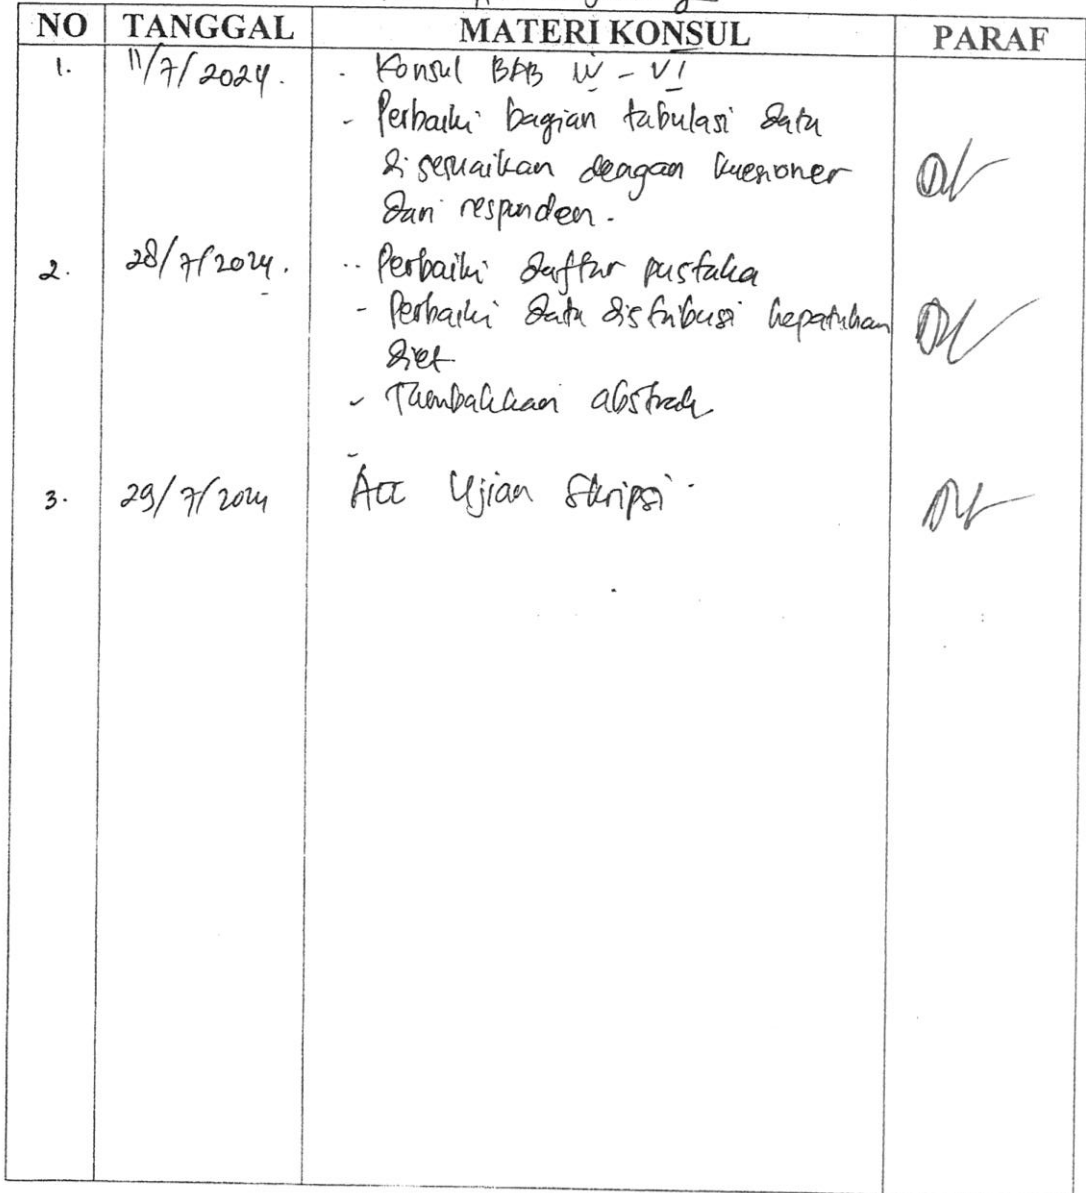 NO TANGGAL MATERI KONSUL PARAF
1. 11/7/2024. - Konsul BAB IV - VI
- Perbaiki bagian tabulasi data
disesuaikan dengan kuesioner
dari responden.
2. 28/7/2024. - Perbaiki daftar pustaka
- Perbaiki data distribusi kepatuhan
diet
- Tambahkan abstrak
3. 29/7/2024 Acc Ujian Skripsi